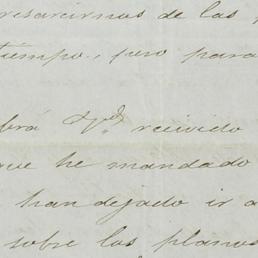 resarcirnos de las
tiempo, pero para
brá Vd. recivido
que he mandado
han dejado ir a
sobre los planos